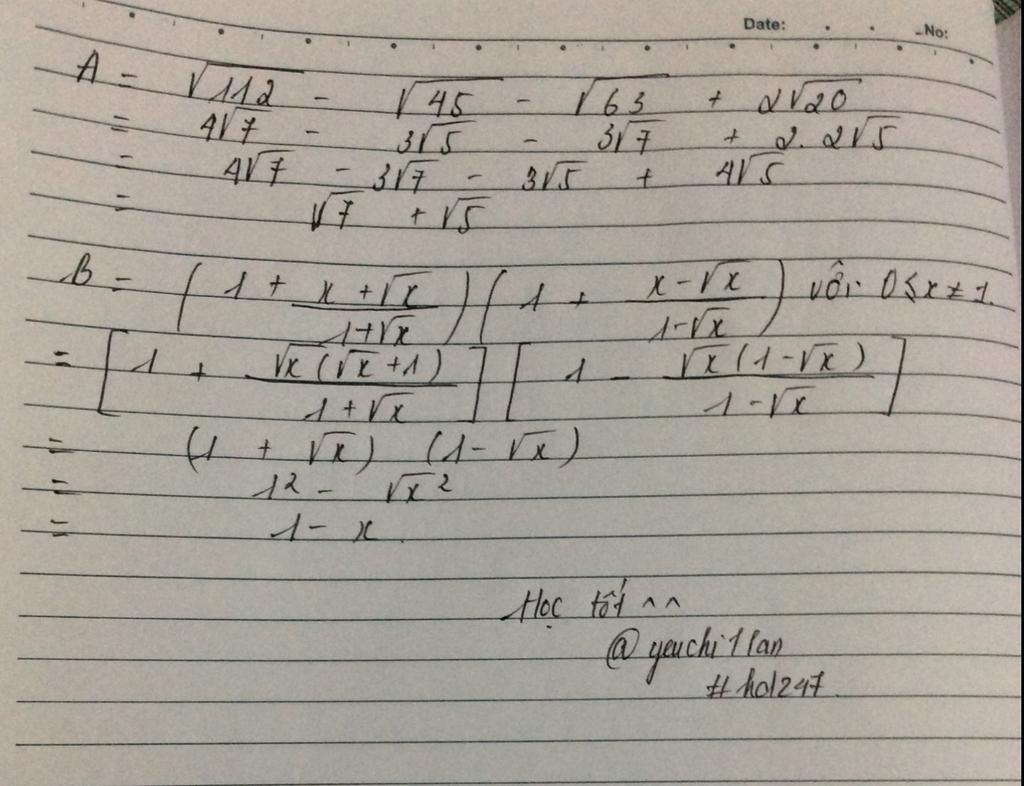 Date: No:
A = √112 - √45 - √63 + 2√20
= 4√7 - 3√5 - 3√7 + 2. 2√5
= 4√7 - 3√7 - 3√5 + 4√5
= √7 + √5
B = (1 + (x + √x)/(1+√x)) (1 + (x - √x)/(1-√x)) với 0 ≤ x ≠ 1.
= [1 + √x(√x+1)/(1+√x)] [1 - √x(1-√x)/(1-√x)]
= (1 + √x) (1 - √x)
= 1² - √x²
= 1 - x.
Học tốt ^^
@yeuchi1lan
#hd247